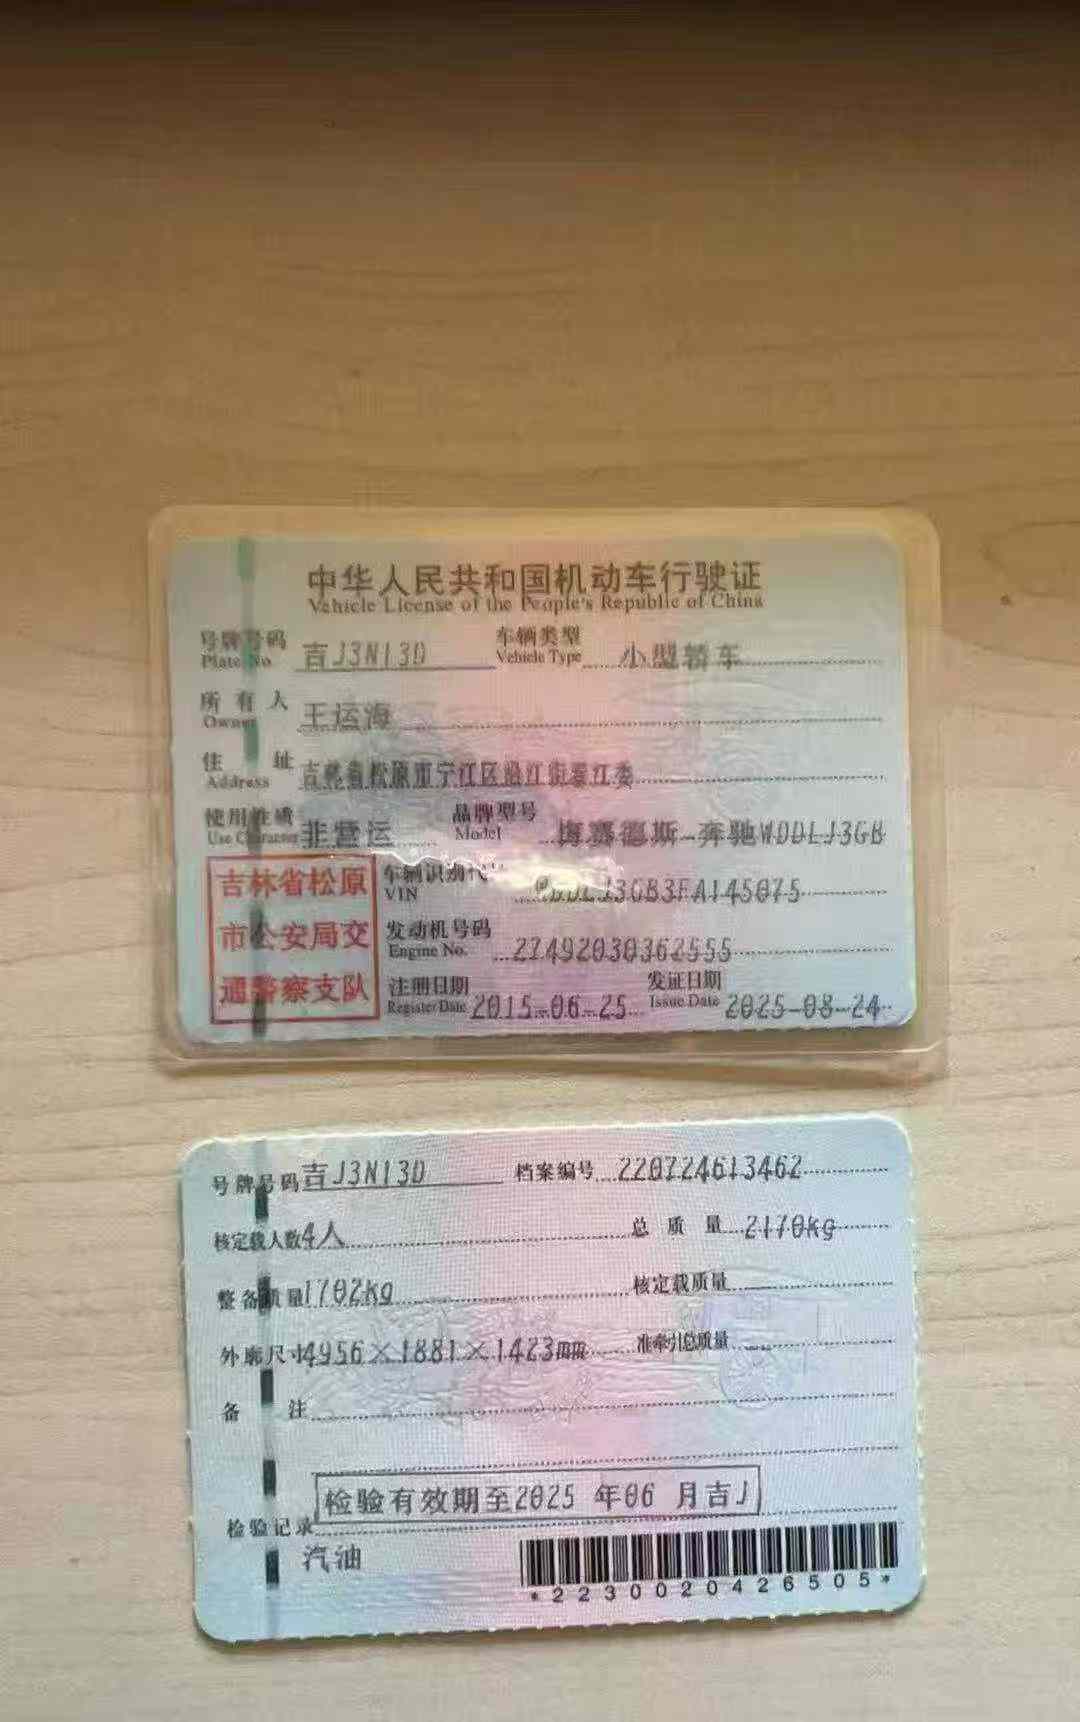 中华人民共和国机动车行驶证
Vehicle License of the People's Republic of China
号牌号码 吉J3N13D 车辆类型 小型轿车
Plate No. Vehicle Type
所有人 王运海
Owner
住址 吉林省松原市宁江区沿江街望江委
Address
使用性质 非营运 品牌型号 梅赛德斯-奔驰WDDLJ3GB
Use Character Model
吉林省松原
市公安局交
通警察支队
车辆识别代
VIN
发动机号码 27492030362555
Engine No.
注册日期 2015-06-25 发证日期 2025-08-24
Register Date Issue Date
号牌号码 吉J3N13D 档案编号 220724613462
核定载人数 4人 总质量 2170kg
整备质量 1702kg 核定载质量
外廓尺寸 4956×1881×1423mm 准牵引总质量
备注
检验有效期至2025 年06 月吉J
检验记录
汽油
*2230020426505*